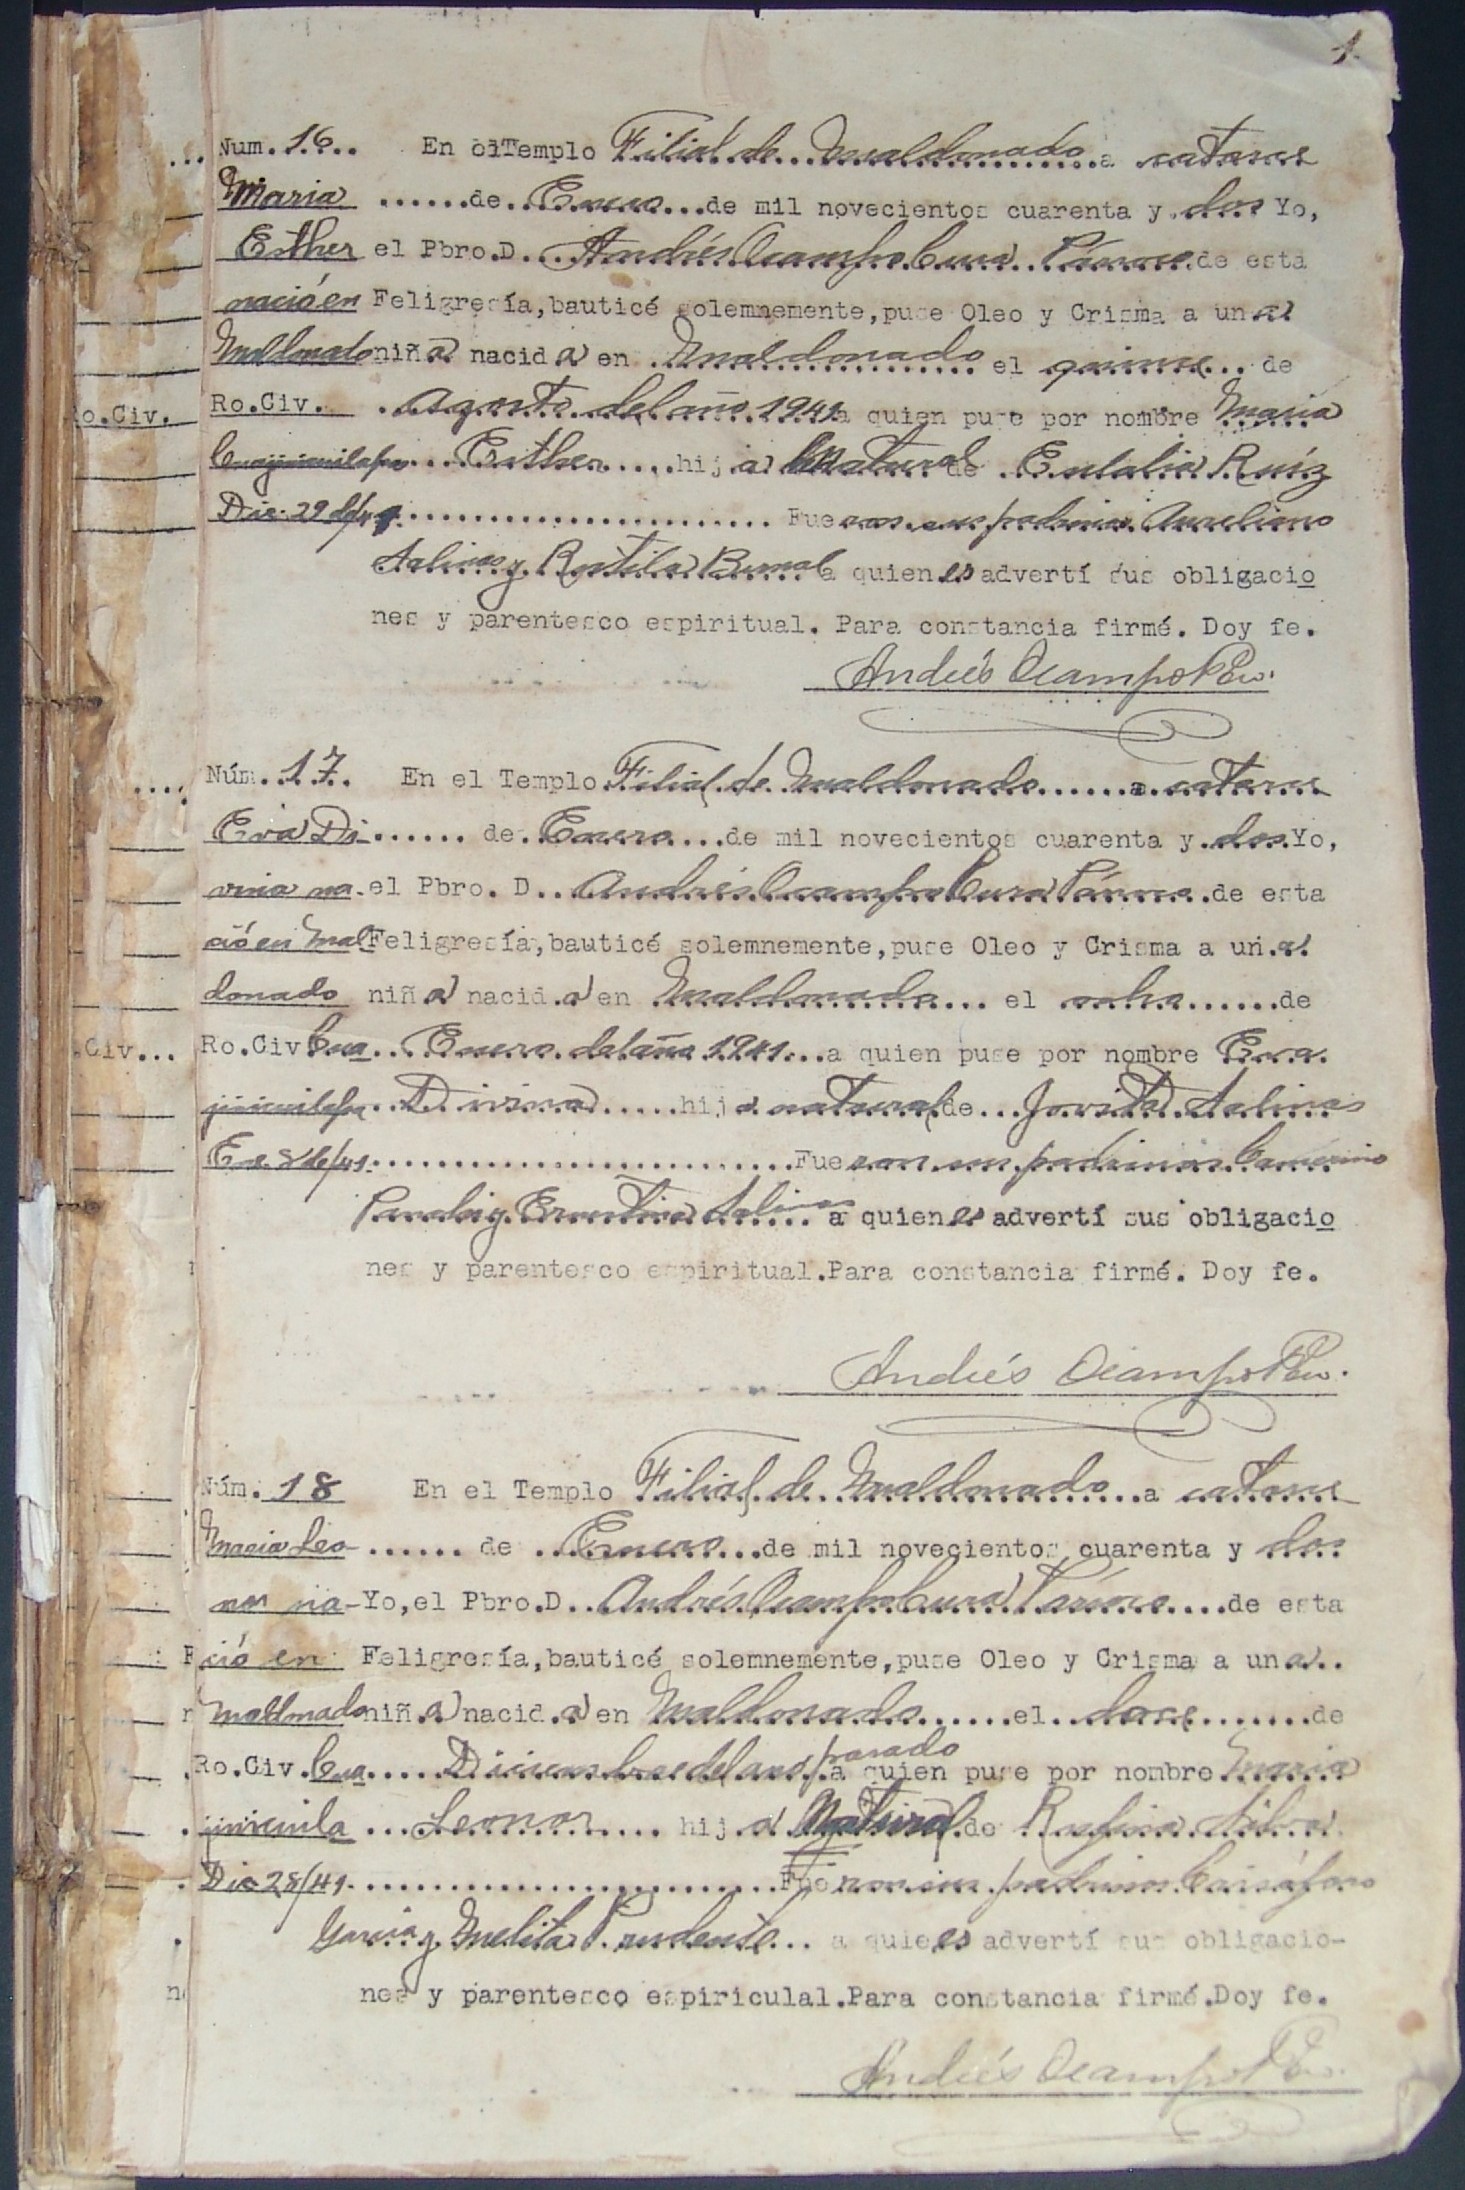 1.
Num. 16.. En el Templo Filial de Maldonado a catorce
Maria ......de. Enero ...de mil novecientos cuarenta y. dos Yo,
Esther el Pbro.D. Andrés Ocampo Cura Párroco de esta
nació en Feligresía, bauticé solemnemente, puse Oleo y Crisma a un a
Maldonado niña nacida en Maldonado el quince... de
Ro.Civ. Agosto del año 1941 a quien puse por nombre Maria
Cuajinicuilapa Esther ..... hija Natural de Eulalia Ruíz
Dic. 29 de/41 ........................ Fueron sus padrinos Aureliano
Salinas y Rutila Bernal a quienes advertí sus obligacio
nes y parentesco espiritual. Para constancia firmé. Doy fe.
Andrés Ocampo Pbro.
Núm. 17. En el Templo Filial de Maldonado ...... a catorce
Eva Di- ...... de. Enero ...de mil novecientos cuarenta y. dos. Yo,
vina na- el Pbro. D.. Andrés Ocampo Cura Párroco de esta
ció en Mal Feligresía, bauticé solemnemente, puse Oleo y Crisma a un.a.
donado niña nacid.a en Maldonado... el ocho ......de
Ro.Civ Cua... Enero del año 1941...a quien puse por nombre Eva
jinicuilapa. Divina ..... hija natural de... Jovita Salinas
En. 8 de/41. .........................Fueron sus padrinos Camerino
y Ernestina Salinas a quienes advertí sus obligacio
nes y parentesco espiritual.Para constancia firmé. Doy fe.
Andrés Ocampo Pbro.
Núm. 18 En el Templo Filial de Maldonado ...a catorce
Maria Leo- ...... de .. Enero ...de mil novecientos cuarenta y dos
nor na- Yo,el Pbro.D.. Andrés Ocampo Cura Párroco....de esta
ció en Feligresía, bauticé solemnemente, puse Oleo y Crisma a un a..
Maldonado niñ.a nacid.a en Maldonado ......el.. doce........de
pasado
Ro.Civ. Cua..... Diciembre del año a quien puse por nombre Maria
jinicuila ... Leonor .... hij.a Natural de Rufina Silva.
Dic 28/41. .........................Fueron sus padrinos Crisóforo
Garcia y Melita Prudente... a quiees advertí sus obligacio-
nes y parentesco espiriculal.Para constancia firmé.Doy fe.
Andrés Ocampo Pbro.